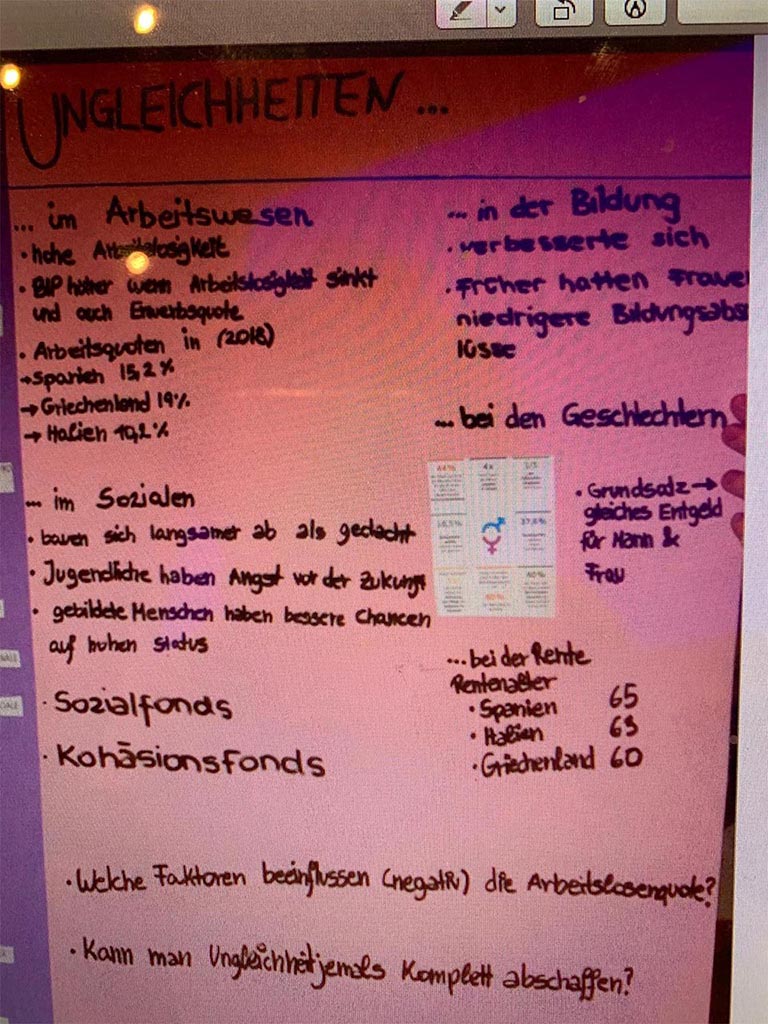 UNGLEICHHEITEN ...
... im Arbeitswesen
• hohe Arbeitslosigkeit
• BIP höher wenn Arbeitslosigkeit sinkt
und auch Erwerbsquote
• Arbeitsquoten in (2018)
→ Spanien 15,2 %
→ Griechenland 19%
→ Italien 10,2 %
... in der Bildung
• verbesserte sich
• früher hatten Fraue
niedrigere Bildungsabs
lüsse
... bei den Geschlechtern
44%
4x
1/3
37,8%
40%
• Grundsatz →
gleiches Entgeld
für Mann &
Frau
... im Sozialen
• bauen sich langsamer ab als gedacht
• Jugendliche haben Angst vor der Zukunft
• gebildete Menschen haben bessere Chancen
auf hohen Status
• Sozialfonds
• Kohäsionsfonds
... bei der Rente
Rentenalter
• Spanien 65
• Italien 63
• Griechenland 60
• Welche Faktoren beeinflussen (negativ) die Arbeitslosenquote?
• Kann man Ungleichheit jemals Komplett abschaffen?